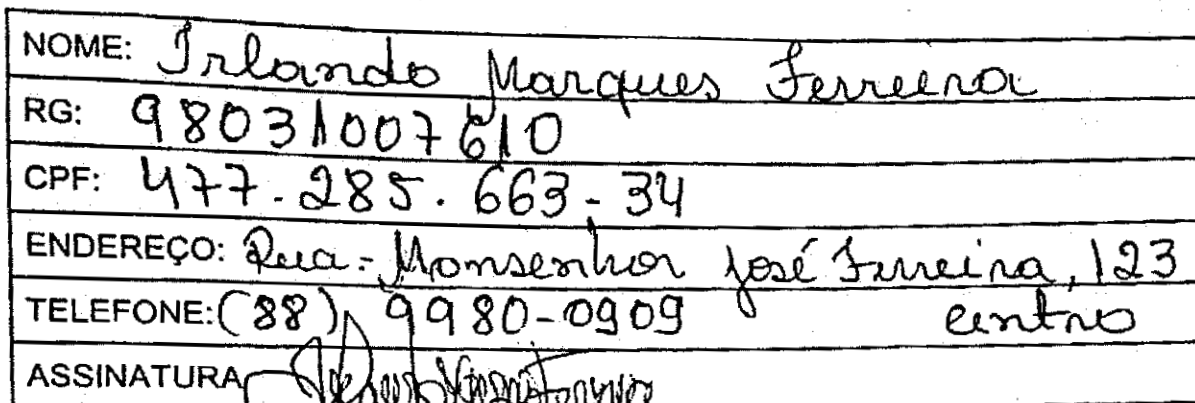 NOME: Irlando Marques Ferreira
RG: 98031007610
CPF: 477.285.663-34
ENDEREÇO: Rua - Monsenhor José Ferreira, 123
TELEFONE: (88) 9980-0909 centro
ASSINATURA